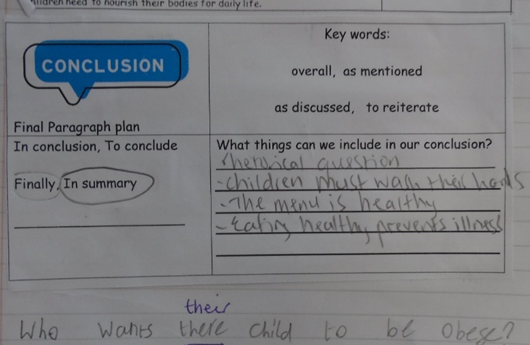 children need to nourish their bodies for daily life.
CONCLUSION
Final Paragraph plan
Key words:
overall, as mentioned
as discussed, to reiterate
In conclusion, To conclude
Finally, In summary
What things can we include in our conclusion?
rhetorical question
-children must wash their hands
-The menu is healthy
-Eating healthy prevents illness
their
Who wants there child to be obese?